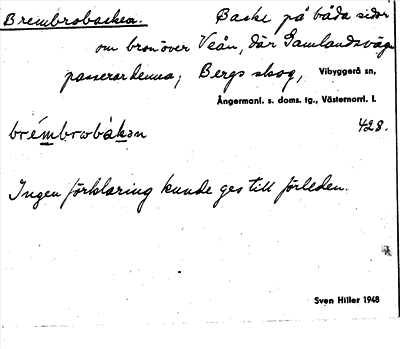 Brembrobacken. Backe på båda sidor
om bron över Veån, där Gamlandsväg
passerar denna; Bergs skog, Vibyggerå sn,
Ångermanl. s. doms. tg., Västernorrl. l.
brémbrωbàkən 428.
Ingen förklaring kunde ges till förleden.
Sven Hiller 1948